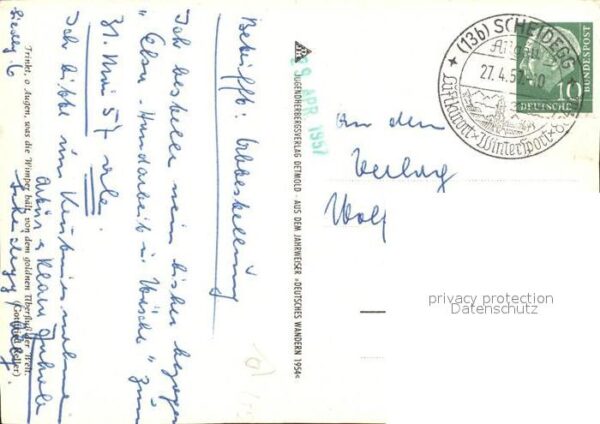 Betrifft: Abbestellung
Ich bestelle mein bisher bezogen
"Elsa - Handarbeit u. Wäsche" zum
31. Mai 57 ab.
Ich bitte um Kenntnisnahme
Siedlg. 6
Trinkt, o Augen, was die Wimper hält, von dem goldnen Überfluß der Welt.
(Gottfried Keller)
JUGENDHERBERGSVERLAG DETMOLD - AUS DEM JAHRWEISER »DEUTSCHES WANDERN 1954«
29 APR. 1957
(13b) SCHEIDEGG
Allgäu
27.4.57-10
Luftkurort Wintersport
DEUTSCHE BUNDESPOST
10
An den
Verlag
Wolf
privacy protection
Datenschutz